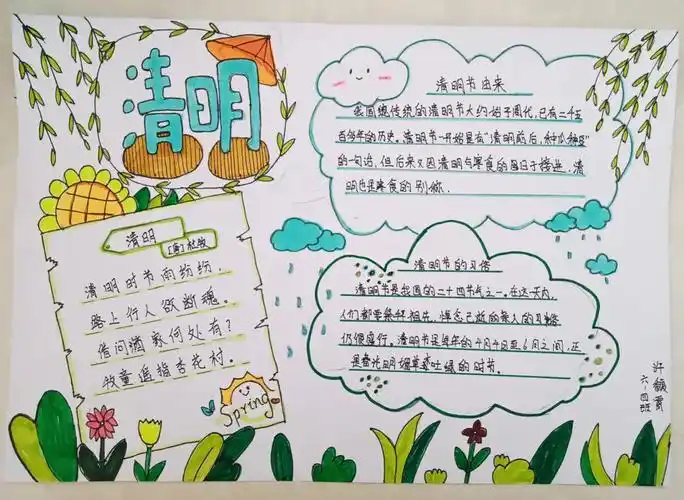 清明
清明
[唐]杜牧
清明时节雨纷纷,
路上行人欲断魂。
借问酒家何处有?
牧童遥指杏花村。
Spring
清明节由来
我国传统的清明节大约始于周代,已有二千五
百多年的历史。清明节一开始是有“清明前后,种瓜种豆”
的一句话,但后来又因清明与寒食的日子接近,清
明也是寒食的别称.
清明节的习俗
清明节是我国的二十四节气之一。在这一天内,
人们都要祭祀祖先,悼念已逝的亲人的习俗
仍很盛行。清明节是每年的4月4日至6日之间,正
是春光明媚草木吐绿的时节。
六-四班
许